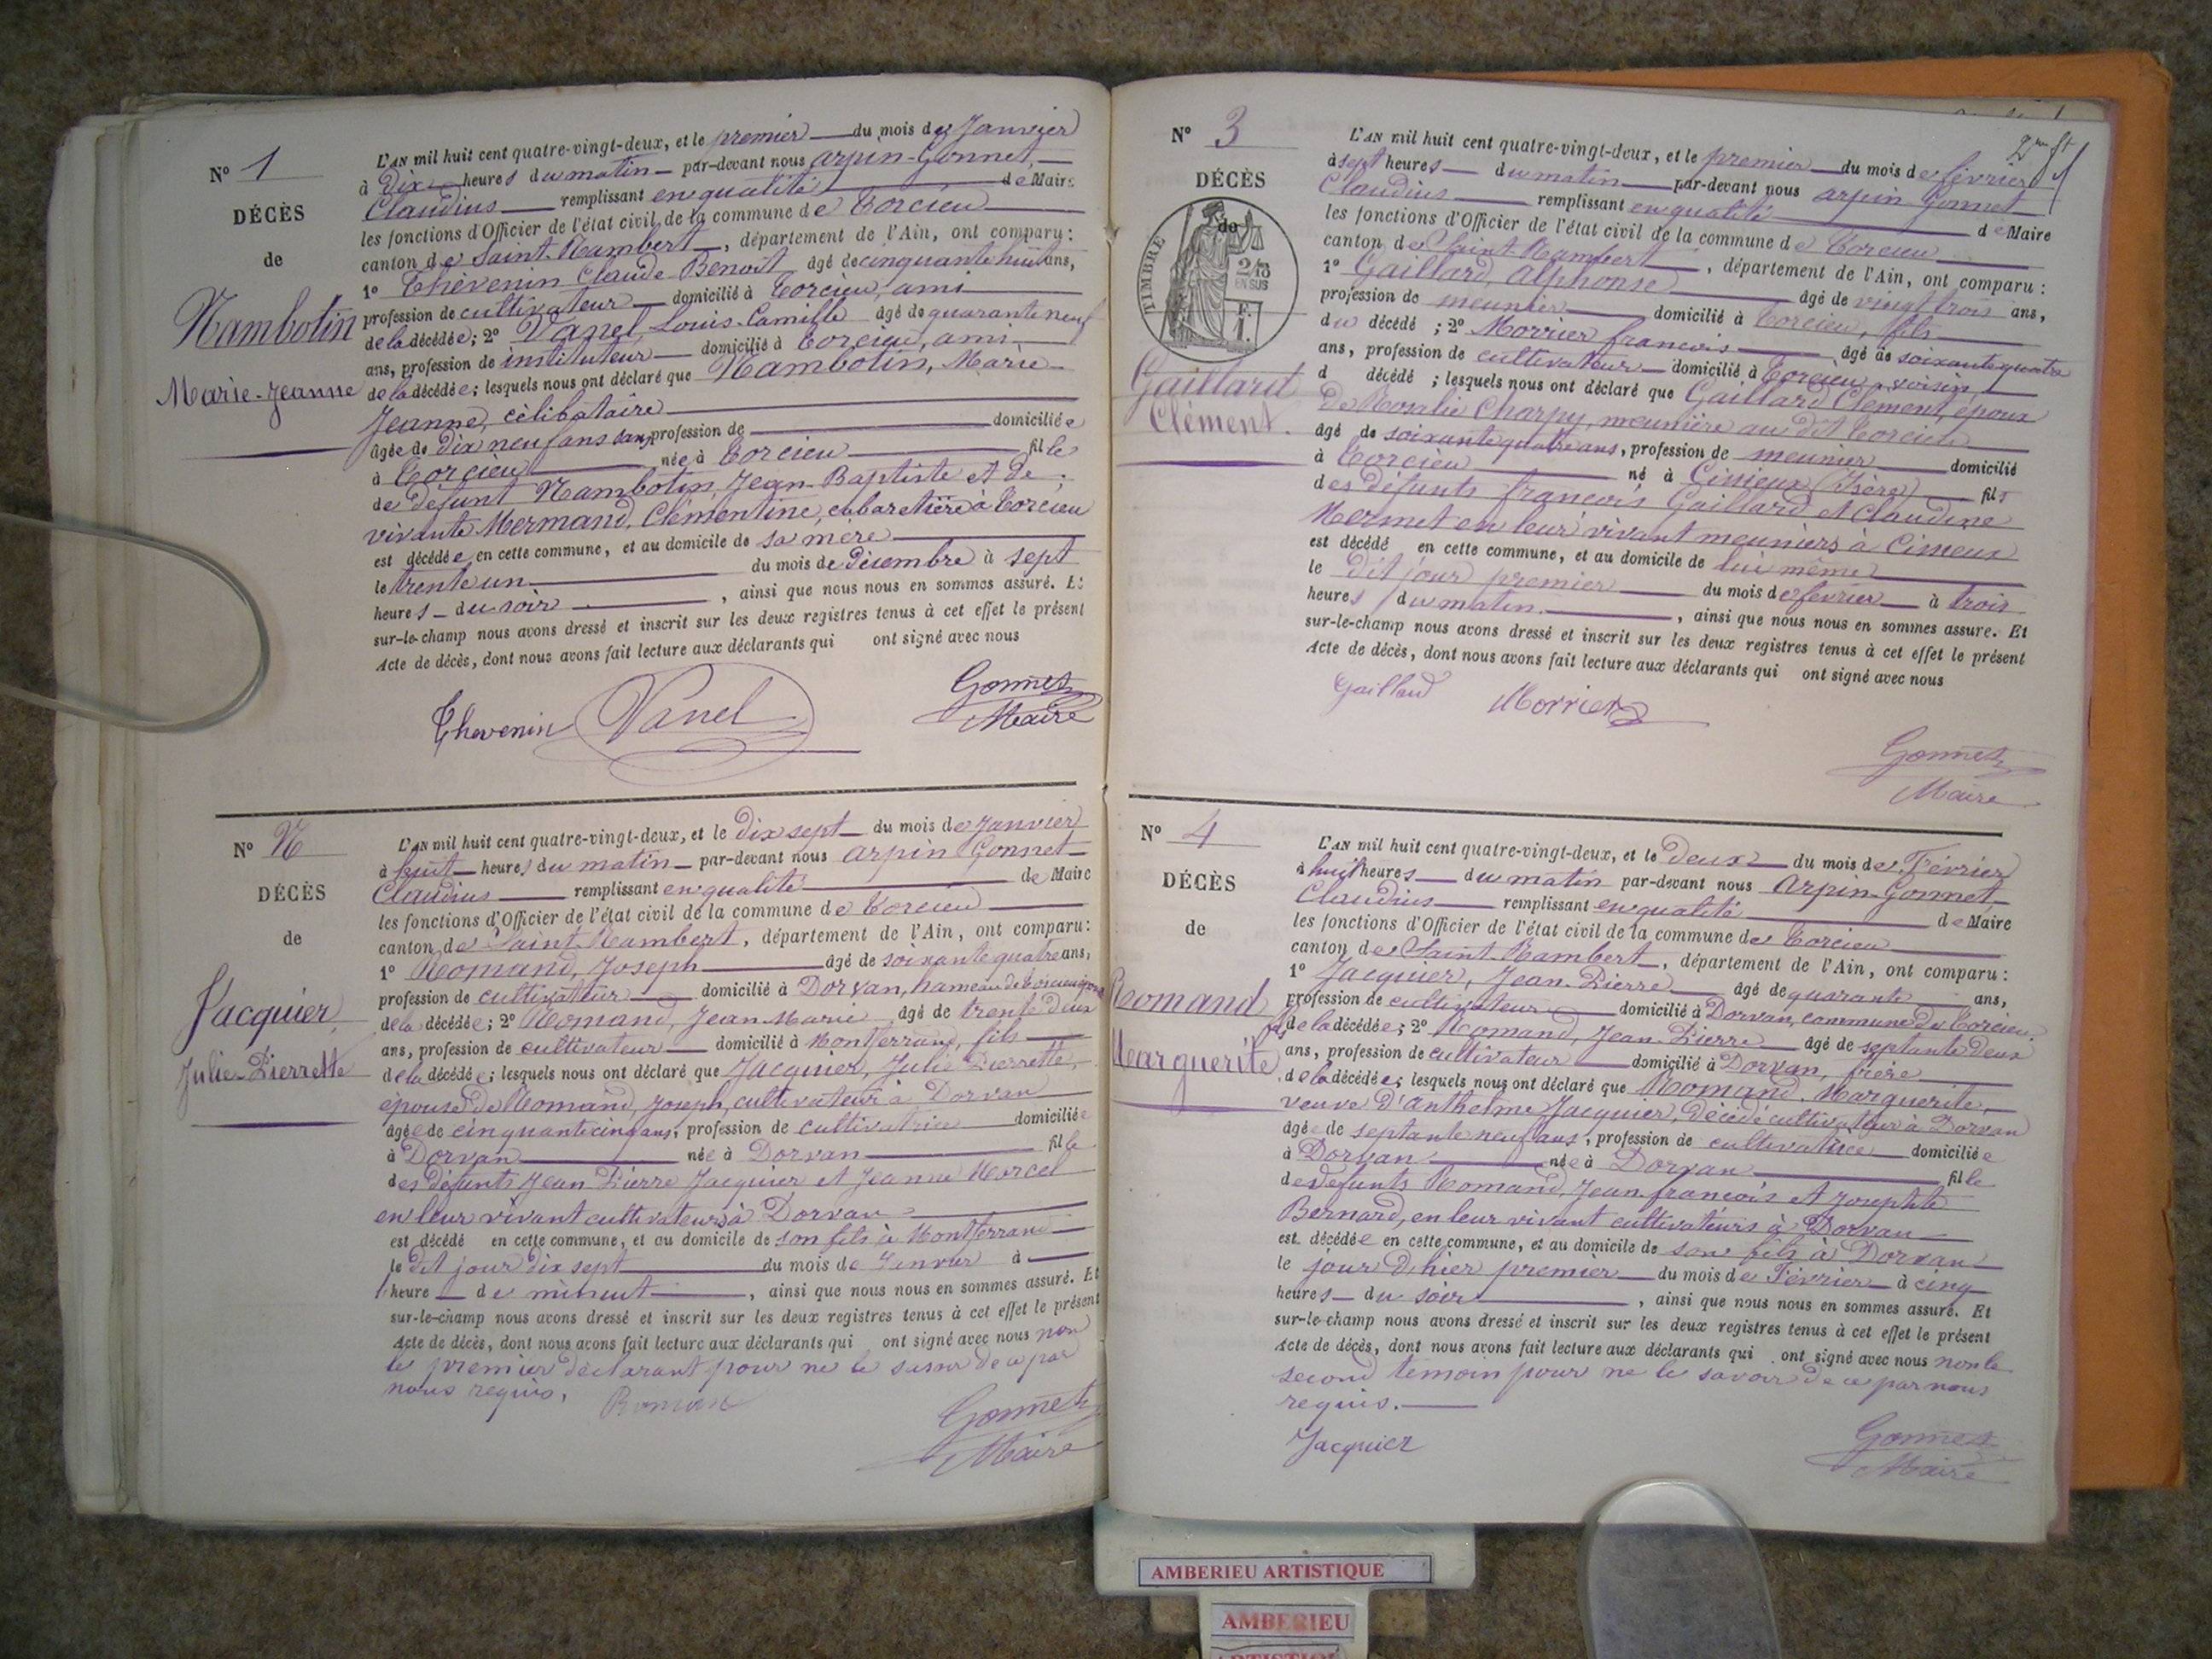 N° 1
DÉCÈS
de
Rambotin
Marie-Jeanne
L'AN mil huit cent quatre-vingt-deux, et le premier du mois de Janvier
à Dix heures du matin par-devant nous Arpin-Gonnet,
Claudius remplissant en qualité de Maire
les fonctions d'Officier de l'état civil de la commune de Torcieu
canton de Saint-Rambert, département de l'Ain, ont comparu:
1° Thévenin Claude Benoît âgé de cinquante huit ans,
profession de cultivateur domicilié à Torcieu, ami
de la décédée; 2° Vanel, Louis-Camille âgé de quarante neuf
ans, profession de instituteur domicilié à Torcieu, ami
de la décédée; lesquels nous ont déclaré que Rambotin, Marie
Jeanne, célibataire
âgée de dix neuf ans sans profession de domiciliée
à Torcieu née à Torcieu fille
de défunt Rambotin, Jean-Baptiste et de
vivante Mermand, Clémentine, cabaretière à Torcieu
est décédée en cette commune, et au domicile de sa mère
le trente un du mois de Décembre à sept
heures du soir, ainsi que nous nous en sommes assuré. Et
sur-le-champ nous avons dressé et inscrit sur les deux registres tenus à cet effet le présent
Acte de décès, dont nous avons fait lecture aux déclarants qui ont signé avec nous
Thevenin Vanel Gonnet
Maire
N° 2
DÉCÈS
de
Jacquier
Julie-Pierrette
L'AN mil huit cent quatre-vingt-deux, et le Dix sept du mois de Janvier
à huit heures du matin par-devant nous Arpin Gonnet
Claudius remplissant en qualité de Maire
les fonctions d'Officier de l'état civil de la commune de Torcieu
canton de Saint-Rambert, département de l'Ain, ont comparu:
1° Romand, Joseph âgé de soixante quatre ans,
profession de cultivateur domicilié à Dorvan, hameau de Torcieu
de la décédée; 2° Romand, Jean-Marie âgé de trente deux
ans, profession de cultivateur domicilié à Montferrand, fils
de la décédée; lesquels nous ont déclaré que Jacquier, Julie Pierrette,
épouse de Romand, Joseph, cultivateur à Dorvan
âgée de cinquante cinq ans, profession de cultivatrice domiciliée
à Dorvan née à Dorvan fille
des défunts Jean Pierre Jacquier et Jeanne Morcel
en leur vivant cultivateurs à Dorvan
est décédé en cette commune, et au domicile de son fils à Montferrand
le dit jour dix sept du mois de Janvier à
heure de minuit, ainsi que nous nous en sommes assuré. Et
sur-le-champ nous avons dressé et inscrit sur les deux registres tenus à cet effet le présent
Acte de décès, dont nous avons fait lecture aux déclarants qui ont signé avec nous non
le premier déclarant pour ne le savoir de ce par
nous requis.
Gonnet
Maire
2me ft
N° 3
DÉCÈS
de
TIMBRE
2/10
EN SUS
Gaillard
Clément.
L'AN mil huit cent quatre-vingt-deux, et le premier du mois de février
à sept heures du matin par-devant nous Arpin Gonnet
Claudius remplissant en qualité de Maire
les fonctions d'Officier de l'état civil de la commune de Torcieu
canton de Saint Rambert, département de l'Ain, ont comparu:
1° Gaillard, Alphonse âgé de vingt trois ans,
profession de meunier domicilié à Torcieu, fils
du décédé; 2° Morrier françois âgé de soixante quatre
ans, profession de cultivateur domicilié à Torcieu, voisin
d décédé; lesquels nous ont déclaré que Gaillard Clément, époux
De Rosalie Charpy, meunière au dit Torcieu
âgé de soixante quatre ans, profession de meunier domicilié
à Torcieu né à Cisieux (Isère) fils
des défunts françois Gaillard et Claudine
Mermet en leur vivant meuniers à Cisieux
est décédé en cette commune, et au domicile de lui même
le dit jour premier du mois de février à trois
heures du matin, ainsi que nous nous en sommes assuré. Et
sur-le-champ nous avons dressé et inscrit sur les deux registres tenus à cet effet le présent
Acte de décès, dont nous avons fait lecture aux déclarants qui ont signé avec nous
Gaillard Morrier
Gonnet
Maire
N° 4
DÉCÈS
de
Romand
Marguerite
L'AN mil huit cent quatre-vingt-deux, et le Deux du mois de Février
à huit heures du matin par-devant nous Arpin-Gonnet
Claudius remplissant en qualité de Maire
les fonctions d'Officier de l'état civil de la commune de Torcieu
canton de Saint Rambert, département de l'Ain, ont comparu:
1° Jacquier, Jean-Pierre âgé de quarante ans,
profession de cultivateur domicilié à Dorvan, commune de Torcieu
fils de la décédée; 2° Romand, Jean-Pierre âgé de septante deux
ans, profession de cultivateur domicilié à Dorvan, frère
de la décédée; lesquels nous ont déclaré que Romand, Marguerite,
veuve d'Anthelme Jacquier, décédé cultivateur à Dorvan
âgée de septante neuf ans, profession de cultivatrice domiciliée
à Dorvan née à Dorvan fille
des défunts Romand, Jean-françois et Josephte
Bernard, en leur vivant cultivateurs à Dorvan
est décédée en cette commune, et au domicile de son fils à Dorvan
le jour d'hier premier du mois de Février à cinq
heures du soir, ainsi que nous nous en sommes assuré. Et
sur-le-champ nous avons dressé et inscrit sur les deux registres tenus à cet effet le présent
Acte de décès, dont nous avons fait lecture aux déclarants qui ont signé avec nous non le
second témoin pour ne le savoir de ce par nous
requis.
Jacquier
Gonnet
Maire
AMBERIEU ARTISTIQUE
AMBERIEU
ARTISTIQUE